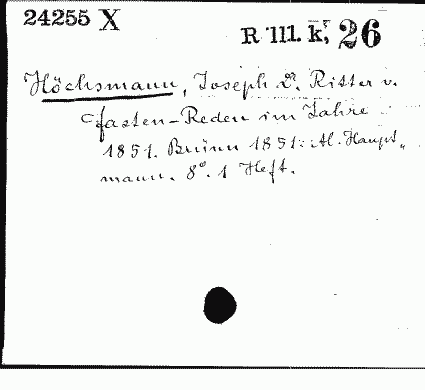 24255 X
R III. k, 26
Höchsmann, Joseph Dr. Ritter v.
Fasten-Reden im Jahre
1851. Brünn 1851: Al. Haupt„
mann. 8°. 1 Heft.